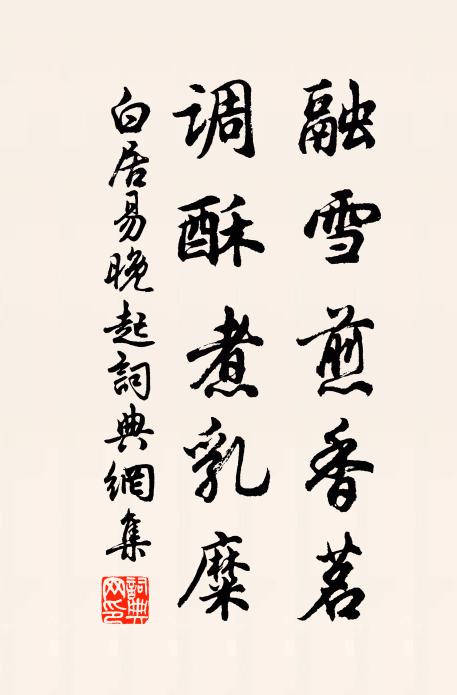 融雪煎香茗
调酥煮乳糜
白居易晚起詞典網集
詞典網印